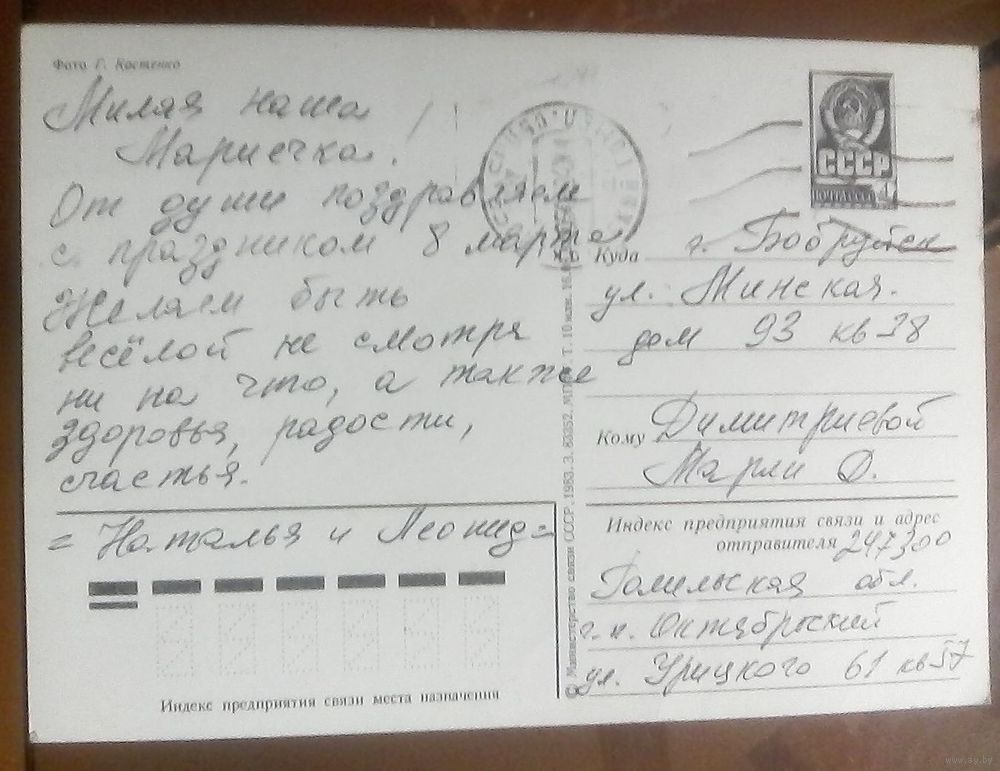 Фото Г. Костенко
Милая наша
Мариечка!
От души поздравляем
с праздником 8 марта
Желаем быть
весёлой не смотря
ни на что, а также
здоровья, радости,
счастья.
= Наталья и Леонид =
Индекс предприятия связи места назначения
© Министерство связи СССР. 1983. З. 83352.
СССР
Куда г. Бобруйск
ул. Минская.
дом 93 кв 38
Кому Димитриевой
Марии О.
Индекс предприятия связи и адрес
отправителя 247300
Гомельская обл.
г.п. Октябрьский
ул. Урицкого 61 кв 57
www.ay.by